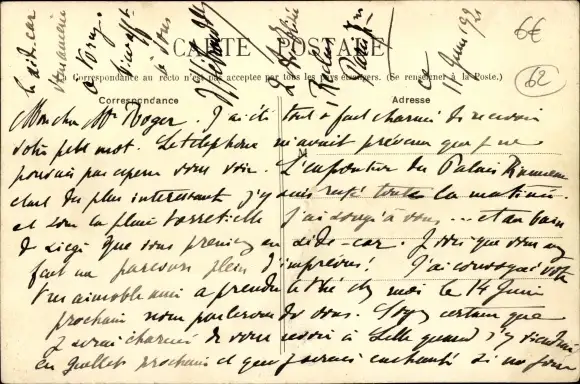 CARTE POSTALE
Correspondance au recto n'est pas acceptée par tous les pays étrangers. (Se renseigner à la Poste.)
Correspondance
Adresse
6€
62
ce 1 Juin 192
Mon cher Mr Roger. J'ai été tout à fait charmé de recevoir
votre petit mot. Le téléphone m'avait prévenu que je ne
pouvais pas espérer vous voir. L'exposition du Palais
était des plus intéressant j'y suis resté toute la matinée
et sous la pluie torrentielle j'ai songé à vous ... et au bain
de siège que vous preniez en side-car. Je vois que vous avez
fait un parcours plein d'imprévus! J'ai convoqué votre
aimable ami a prendre le thé chez moi le 14 Juin
prochain nous parlerons de vous. Soyez certain que
je serai charmé de vous revoir à Lille quand j'y viendrai
en Juillet prochain et que je serais enchanté si